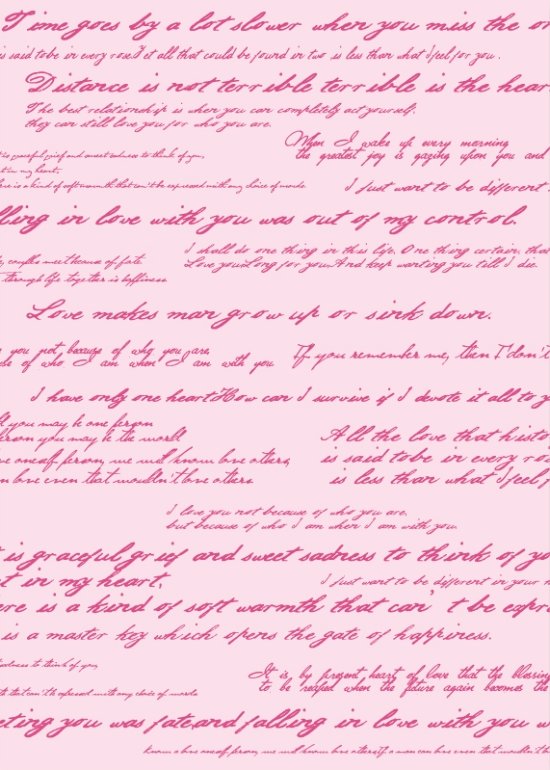 Time goes by a lot slower when you miss the
is said to be in every rose.Yet all that could be found in two is less than what I feel for you.
Distance is not terrible terrible is the hear
The best relationship is when you can completely act yourself.
they can still love you for who you are.
When I wake up every morning
the greatest joy is gazing upon you and
is graceful grief and sweet sadness to think of you,
in my heart.
is a kind of soft warmth that can't be expressed with any choice of words
I just want to be different
lling in love with you was out of my control.
I shall do one thing in this life. One thing certain, that
Love you.Long for you.And keep wanting you till I die.
meet because of fate
through life together is happiness
Love makes man grow up or sink down.
you not because of who you are,
of who I am when I am with you
If you remember me, then I don't
I have only one heart How can I survive if I devote it all to y
you may be one person
person you may be the world
All the love that histo
one self person, we will know love others,
is said to be in every ros
love even that wouldn't love others
is less than what I feel f
I love you not because of who you are,
but because of who I am when I am with you.
is graceful grief and sweet sadness to think of yo
t in my heart.
I just want to be different in your
ere is a kind of soft warmth that can't be expre
is a master key which opens the gate of happiness.
sadness to think of you,
It is by present heart of love that the blessing
that can't be expressed with any choice of words
to be reaped when the future again becomes the
eting you was fate,and falling in love with you w
know a love one self person, we will know love others,If a man can love even that wouldn't